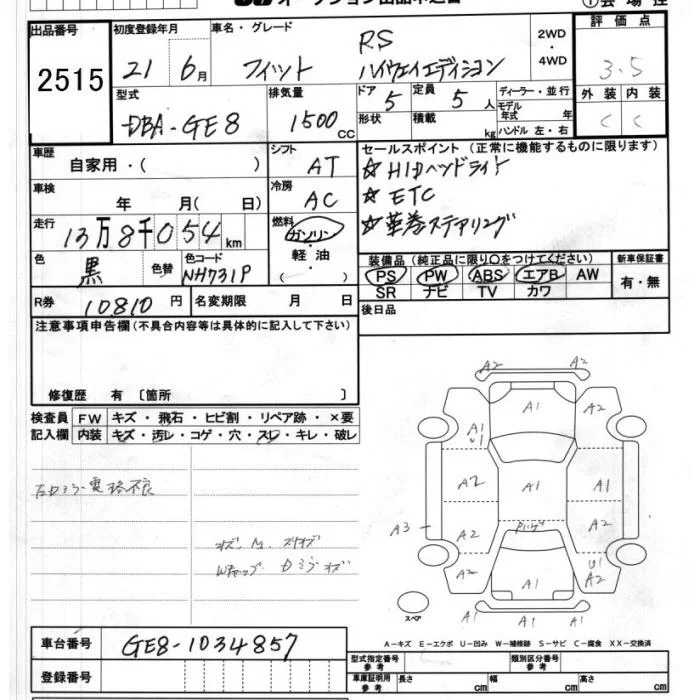 オークション出品申込書
①会場控
出品番号
2515
初度登録年月
21 6月
車名・グレード
フィット
RS
ハイウェイエディション
2WD
・
4WD
評価点
3.5
外装 内装
C C
型式
DBA-GE8
排気量
1500cc
ドア
5
定員
5人
形状
積載
kg
ディーラー・並行
モデル年式 年
ハンドル 左・右
車歴
自家用・( )
シフト
AT
車検
年 月( 日)
冷房
AC
走行
13万8千054km
燃料
ガソリン
・
軽油
・
( )
色
黒
色替
色コード
NH731P
R券
10810円
名変期限 月 日
セールスポイント (正常に機能するものに限ります)
☆HIDヘッドライト
☆ETC
☆革巻ステアリング
装備品(純正品に限り○をつけてください)
PS PW ABS エアB AW
SR ナビ TV カワ
新車保証書
有・無
後日品
注意事項申告欄(不具合内容等は具体的に記入して下さい)
修復歴 有 〔箇所 〕
検査員記入欄
FW キズ・飛石・ヒビ割・リペア跡・×要
内装 キズ・汚レ・コゲ・穴・スレ・キレ・破レ
左Dミラー電格不良
A2 A2
A1
A2
A1
U1
A2 A1 A1
A3
A2 A2
A2 A1 U1
A2
A1 A1
スペア
A-キズ E-エクボ U-凹み W-補修跡 S-サビ C-腐食 XX-交換済
車台番号
GE8-1034857
登録番号
型式指定番号
参考
類別区分番号
参考
車庫証明用
参考
長さ cm
幅 cm
高さ cm